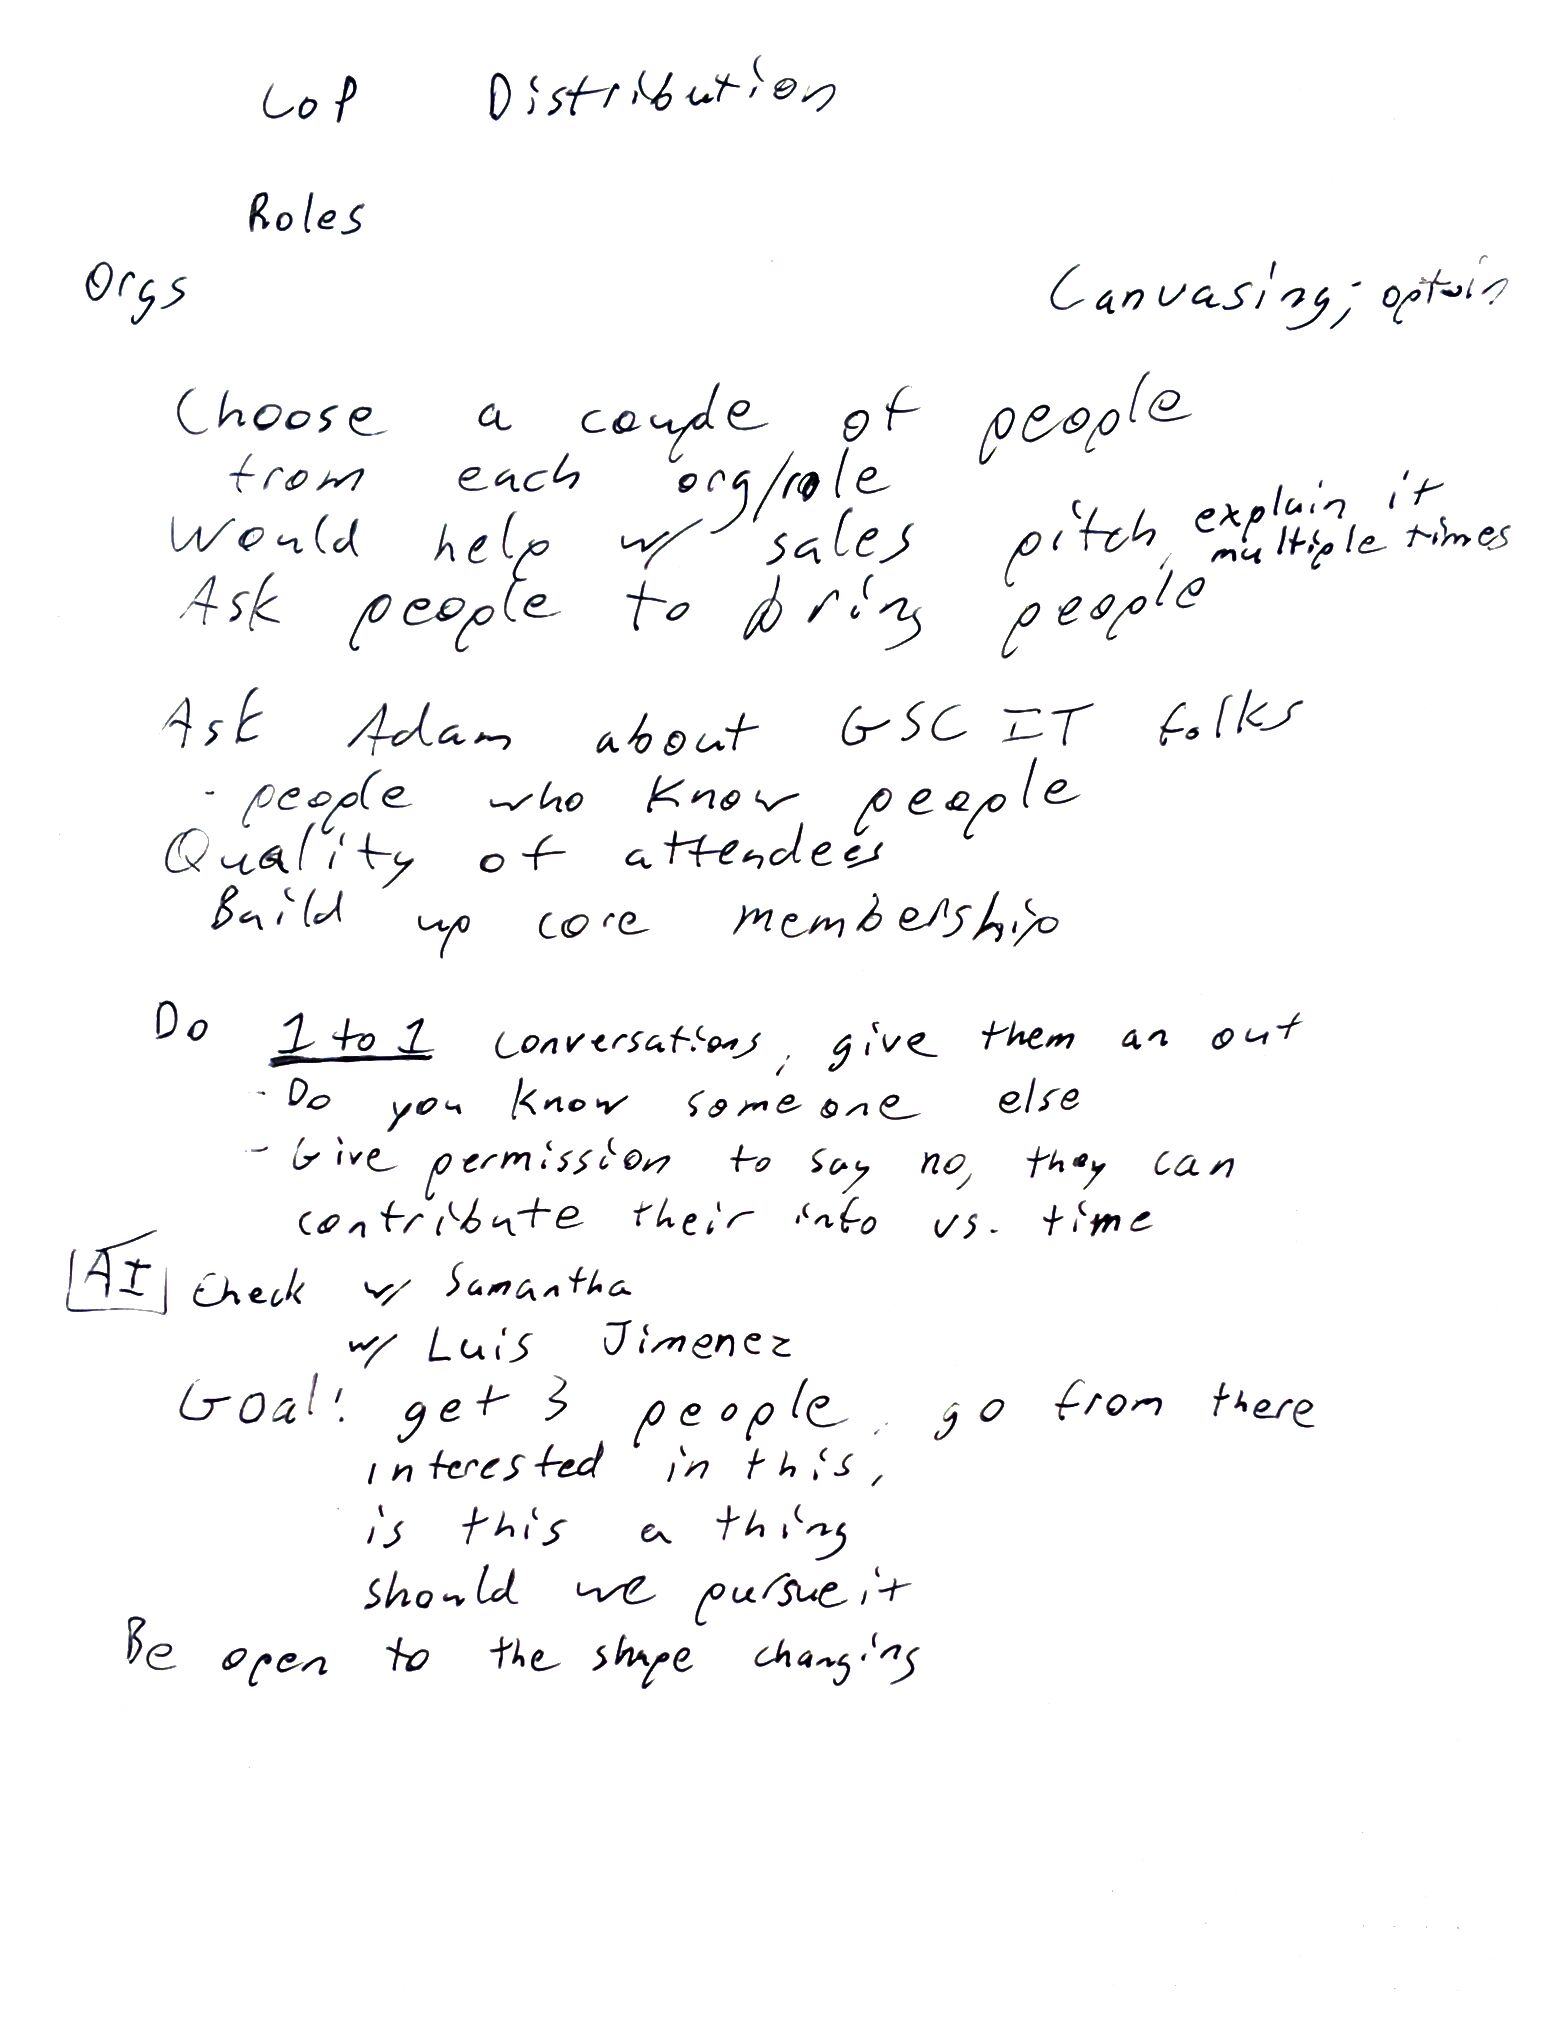 CoP Distribution
Roles
Orgs
Canvasing; opt in
Choose a couple of people
from each org/role
Would help w/ sales pitch, explain it
multiple times
Ask people to bring people
Ask Adam about GSC IT folks
- people who know people
Quality of attendees
Build up core membership
Do 1 to 1 conversations, give them an out
- Do you know someone else
- Give permission to say no, they can
contribute their info vs. time
AI Check w/ Samantha
w/ Luis Jimenez
Goal: get 3 people, go from there
interested in this,
is this a thing
should we pursue it
Be open to the shape changing